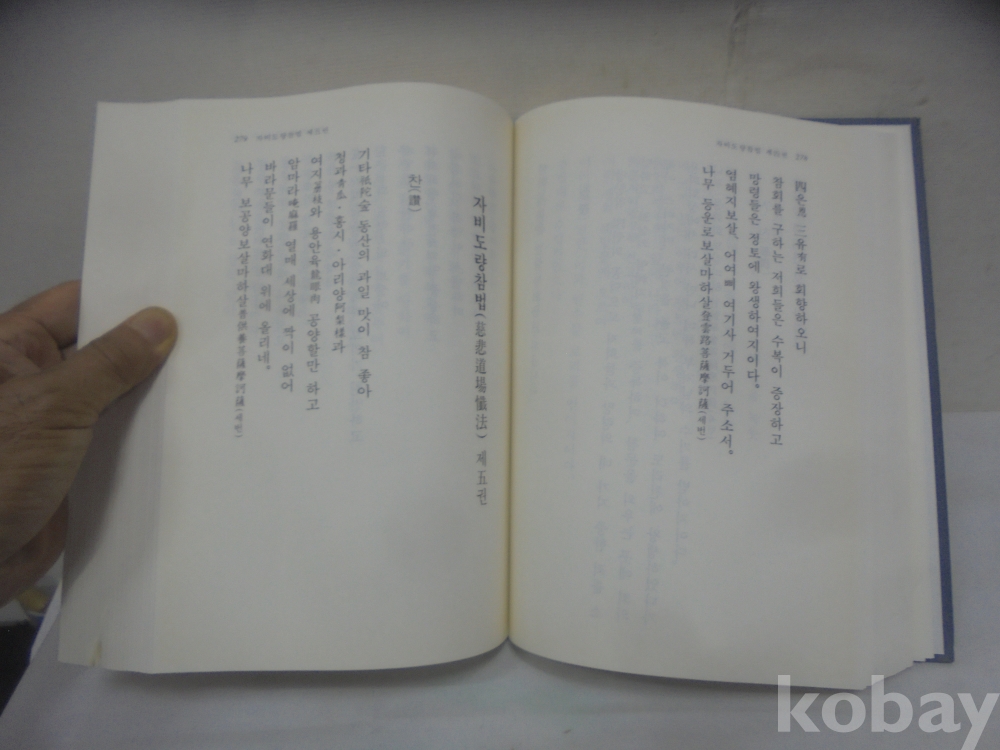 四은恩 三유有로 회향하오니
참회를 구하는 저희들은 수복이 증장하고
망령들은 정토에 왕생하여지이다。
영혜지보살, 어여삐 여기사 거두어 주소서。
나무 등운로보살마하살登雲路菩薩摩訶薩(세번)
자비도량참법(慈悲道場懺法) 제五권
찬(讚)
기타祇陀숲 동산의 과일 맛이 참 좋아
청과靑초・홍시・아리양阿梨樣과
여지荔枝와 용안육龍眼肉 공양할만 하고
암마라庵麻羅 열매 세상에 짝이 없어
바라문들이 연화대 위에 올리네。
나무 보공양보살마하살普供養菩薩摩訶薩(세번)
kobay